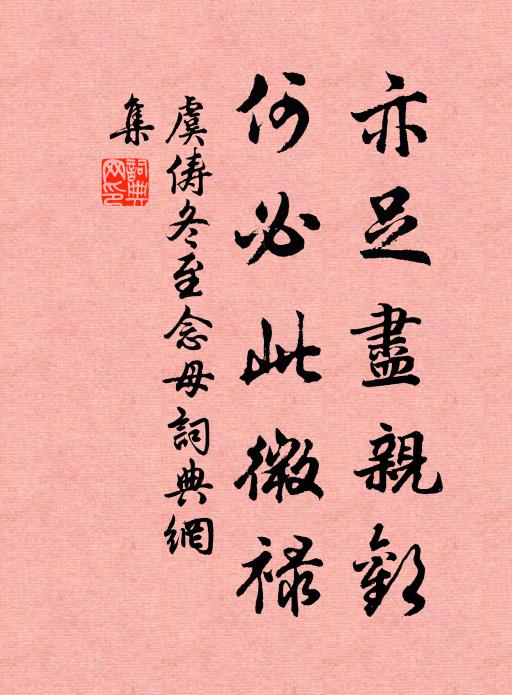 亦足盡親歡
何必此微祿
虞儔冬至念母詞典網
集
詞典
网印